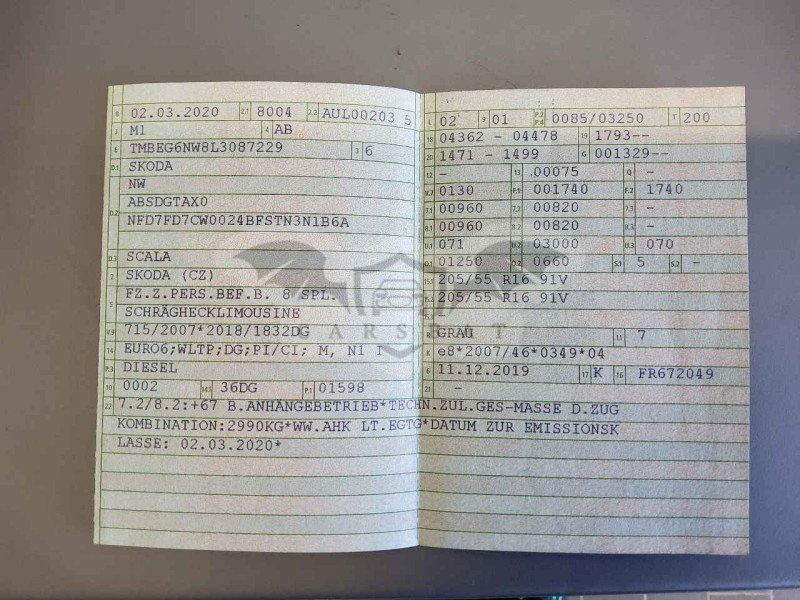 B 02.03.2020 2.1 8004 2.2 AUL00203 5
J M1 4 AB
E TMBEG6NW8L3087229 3 6
D.1 SKODA
NW
D.2 ABSDGTAX0
NFD7FD7CW0024BFSTN3N1B6A
D.3 SCALA
2 SKODA (CZ)
5 FZ.Z.PERS.BEF.B. 8 SPL.
SCHRÄGHECKLIMOUSINE
V.9 715/2007*2018/1832DG
14 EURO6;WLTP;DG;PI/CI; M, N1 I
P.3 DIESEL
10 0002 14.1 36DG P.1 01598
22 7.2/8.2:+67 B.ANHÄNGEBETRIEB*TECHN.ZUL.GES-MASSE D.ZUG
KOMBINATION:2990KG*WW.AHK LT.EGTG*DATUM ZUR EMISSIONSK
LASSE: 02.03.2020*
L 02 9 01 P.2 P.4 0085/03250 T 200
18 04362 - 04478 19 1793--
20 1471 - 1499 G 001329--
12 - 13 00075 Q -
V.7 0130 F.1 001740 F.2 1740
7.1 00960 7.2 00820 7.3 -
8.1 00960 8.2 00820 8.3 -
U.1 071 U.2 03000 U.3 070
O.1 01250 O.2 0660 S.1 5 S.2 -
15.1 205/55 R16 91V
15.2 205/55 R16 91V
R GRAU 11 7
K e8*2007/46*0349*04
6 11.12.2019 17 K 16 FR672049
21 -